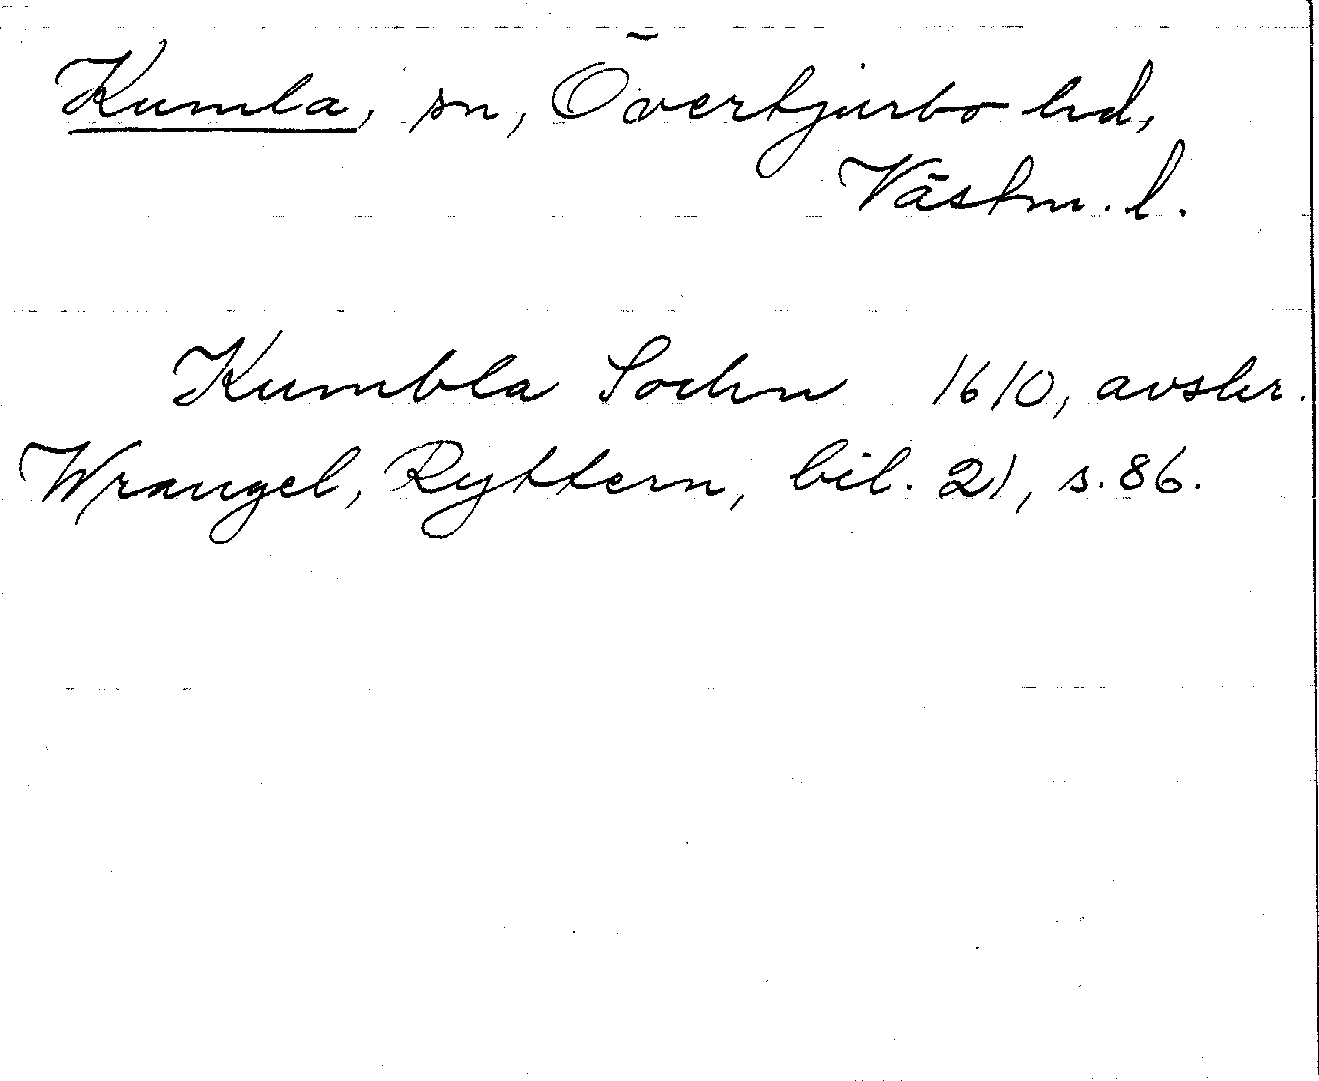 Kumla, sn, Övertjurbo hd,
Västm. l.
Kumbla Sochn 1610, avskr.
Wrangel, Ryttern, bil. 21, s. 86.